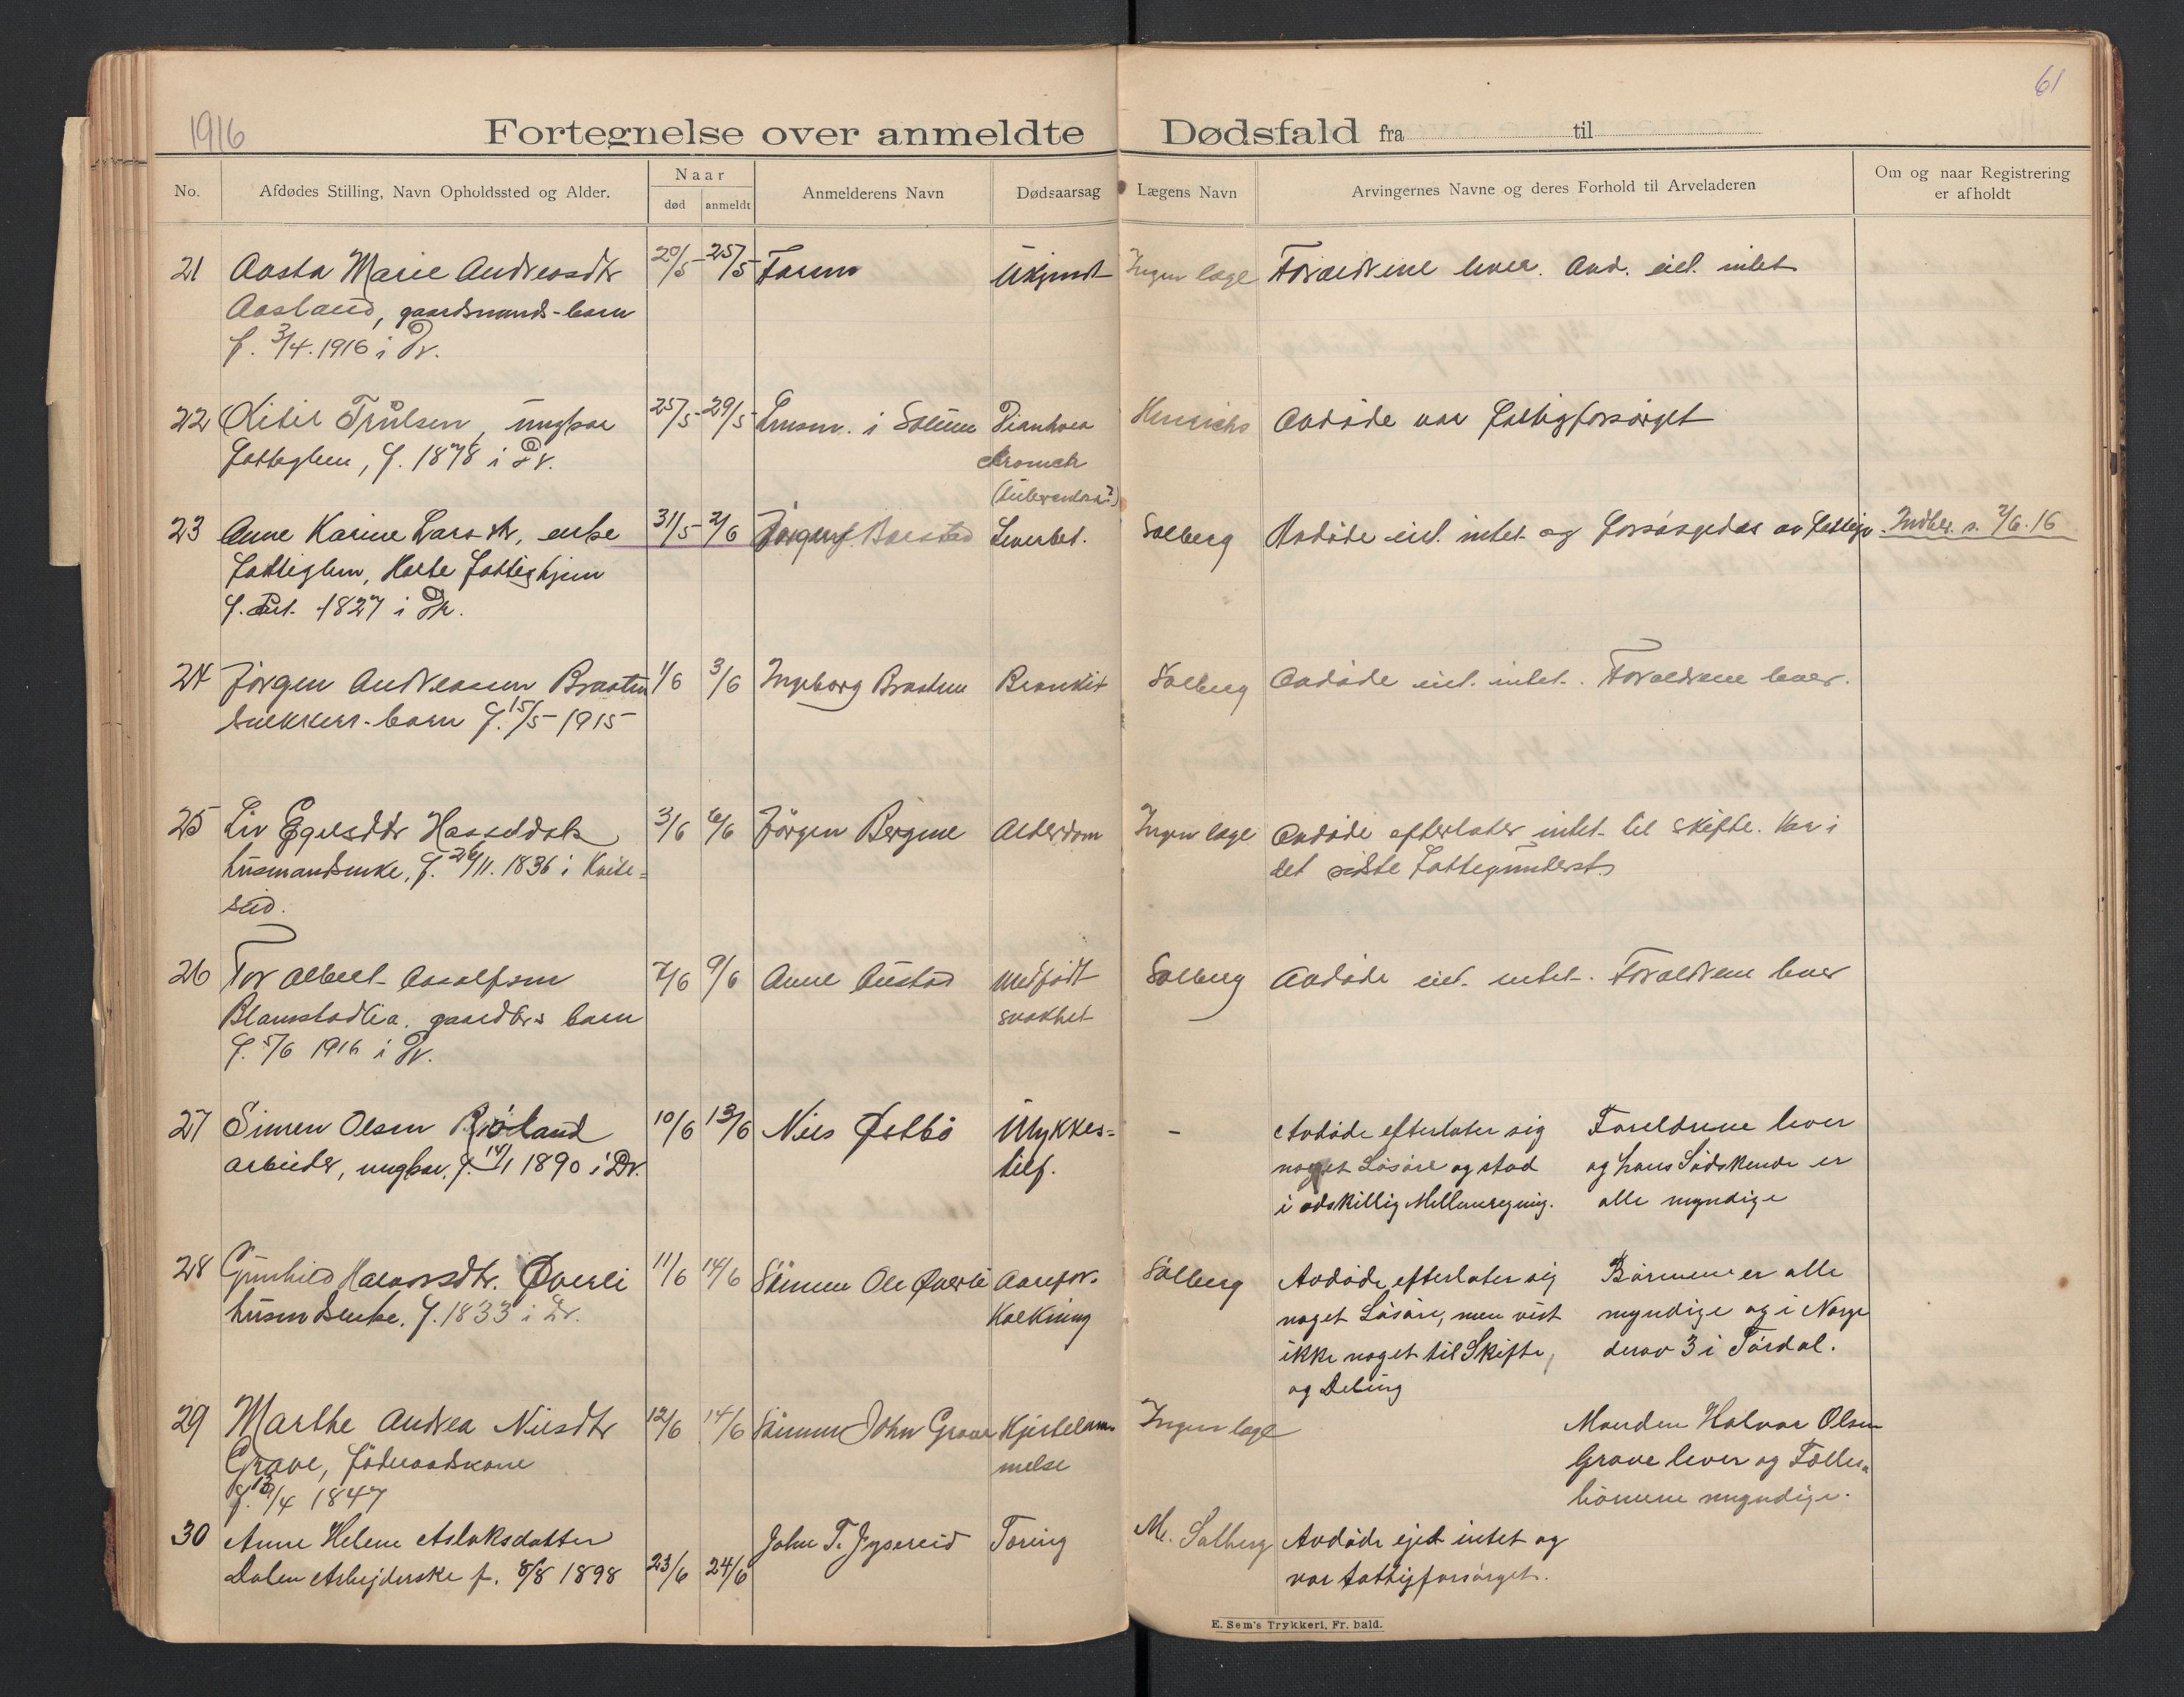 1916
61
Fortegnelse over anmeldte Dødsfald fra til
No.
Afdødes Stilling, Navn Opholdssted og Alder.
Naar
død
anmeldt
Anmelderens Navn
Dødsaarsag
Lægens Navn
Arvingernes Navne og deres Forhold til Arveladeren
Om og naar Registrering
er afholdt
21 Aasta Marie Andreasdtr 20/5 25/5 Faren Ukjendt Ingen læge Forældrene lever. Avd. eiet intet
Aasland, gaardmands-barn
f. 3/4. 1916 i Dr.
22 Kitil Trulsen, ungkar 25/5 29/5 Lensm. i Solum Hinrichs Avdøde var fattigforsørget
Fattiglem, f. 1878 i Dr. kronick
23 Anne Karine Larsdtr, enke 31/5 2/6 Jørgen Solberg Avdøde eiet intet og forsørgedes av Fattigv. Indber. s. 2/6. 16
Fattiglem, Fattighjem
f. 1827 i Dr.
24 Jørgen Andreasen 1/6 3/6 Ingeborg Bronkit Solberg Avdøde eiet intet. Forældrene lever.
snekkers-barn f. 15/5 1915
25 Liv Egilsdtr 3/6 6/6 Jørgen Bergene Alderdom Ingen læge Avdøde efterlater intet til skifte. Var i
husmandsenke, f. 26/11. 1836 i Kvite- det sidste Fattigunderst.
seid.
26 Tor Albert Aasolfsen 7/6 9/6 Anne Austad Medfødt Solberg Avdøde eiet intet. Forældrene lever
gaardbrs barn svakhet
f. 5/6 1916 i Dr.
27 Simen Olsen 10/6 13/6 Nils Østbø Ulykkes- - Avdøde efterlater sig Forældrene lever
arbeider, ungkar, f. 14/1 1890 i Dr. tilf. noget Løsøre og stod og hans Sødskende er
i adskillig Mellemregning. alle myndige
28 Gunhild Halvorsdtr. Øverli 11/6 14/6 Sønnen Ole Øverli Aarefor- Solberg Avdøde efterlater sig Børnene er alle
husmdsenke, f. 1833 i Dr. kalkning noget Løsøre, men vist myndige og i Norge
ikke noget til Skifte, derav 3 i Tørdal.
og Deling
29 Marthe Andrea Nilsdtr 12/6 14/6 Sønnen John Grave Ingen læge Manden Halvor Olsen
Grave, føderaadskone melse Grave lever og Fælles-
1847 børnene myndige.
30 Anne Helene Aslaksdatter John T. Tæring M. Solberg Avdøde ejed intet og
Dalen Arbejderske f. 8/8 1898 23/6 24/6 var fattigforsørget.
E. Sem's Trykkeri, Fr. hald.